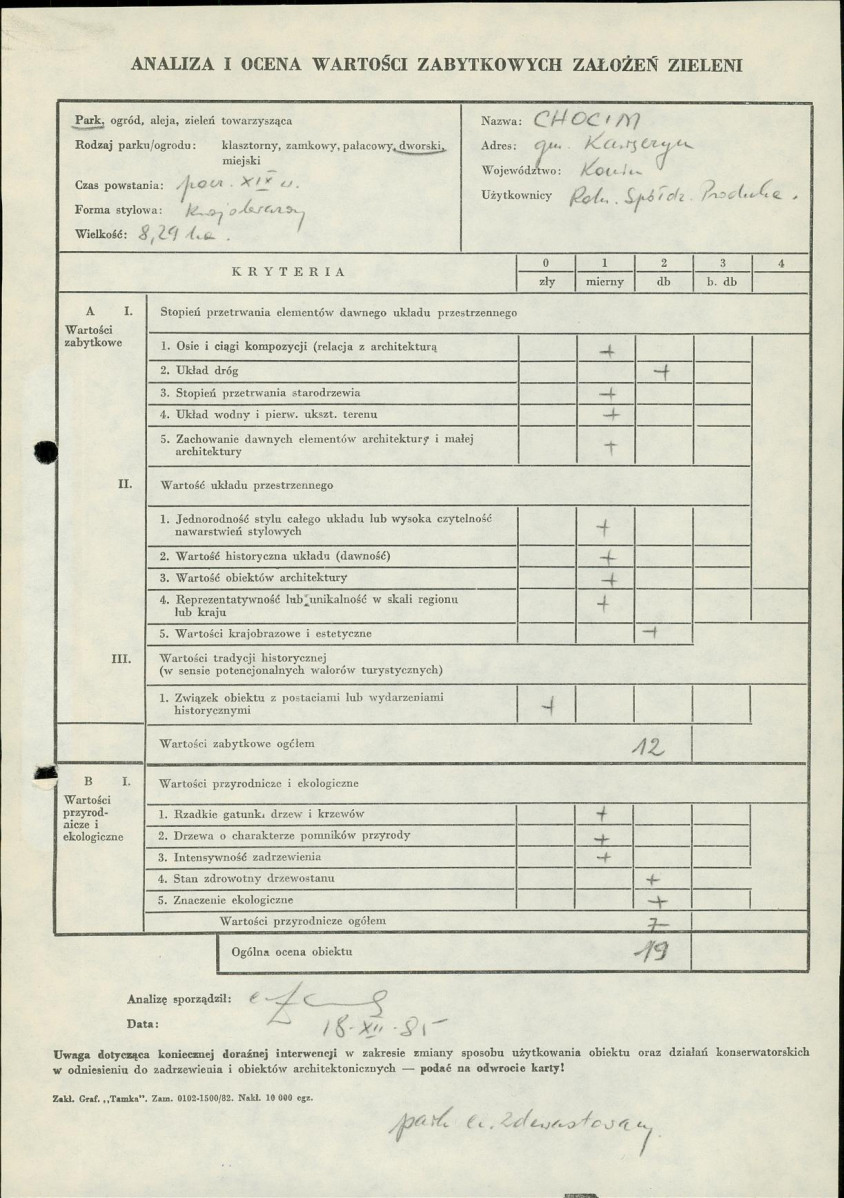 ANALIZA I OCENA WARTOŚCI ZABYTKOWYCH ZAŁOŻEŃ ZIELENI
Park, ogród, aleja, zieleń towarzysząca
Rodzaj parku/ogrodu: klasztorny, zamkowy, pałacowy, dworski,
miejski
Czas powstania: XIX w.
Forma stylowa: Krajobrazowy
Wielkość: 8,29 ha.
Nazwa: CHOCIM
Adres: gm. Kawęczyn
Województwo: Konin
Użytkownicy Roln. Spółdz. Produkc.
KRYTERIA
0 1 2 3 4
zły mierny db b. db
A I. Stopień przetrwania elementów dawnego układu przestrzennego
Wartości
zabytkowe
1. Osie i ciągi kompozycji (relacja z architekturą +
2. Układ dróg +
3. Stopień przetrwania starodrzewia +
4. Układ wodny i pierw. ukszt. terenu +
5. Zachowanie dawnych elementów architektury i małej
architektury +
II. Wartość układu przestrzennego
1. Jednorodność stylu całego układu lub wysoka czytelność
nawarstwień stylowych +
2. Wartość historyczna układu (dawność) +
3. Wartość obiektów architektury +
4. Reprezentatywność lub unikalność w skali regionu
lub kraju +
5. Wartości krajobrazowe i estetyczne +
III. Wartości tradycji historycznej
(w sensie potencjonalnych walorów turystycznych)
1. Związek obiektu z postaciami lub wydarzeniami
historycznymi +
Wartości zabytkowe ogółem 12
B I. Wartości przyrodnicze i ekologiczne
Wartości
przyrod-
nicze i
ekologiczne
1. Rzadkie gatunki drzew i krzewów +
2. Drzewa o charakterze pomników przyrody +
3. Intensywność zadrzewienia +
4. Stan zdrowotny drzewostanu +
5. Znaczenie ekologiczne +
Wartości przyrodnicze ogółem 7
Ogólna ocena obiektu 19
Analizę sporządził:
Data: 18-XII-85
Uwaga dotycząca koniecznej doraźnej interwencji w zakresie zmiany sposobu użytkowania obiektu oraz działań konserwatorskich
w odniesieniu do zadrzewienia i obiektów architektonicznych — podać na odwrocie karty!
Zakł. Graf. „Tamka”. Zam. 0102-1500/82. Nakł. 10 000 egz.
park zdewastowany